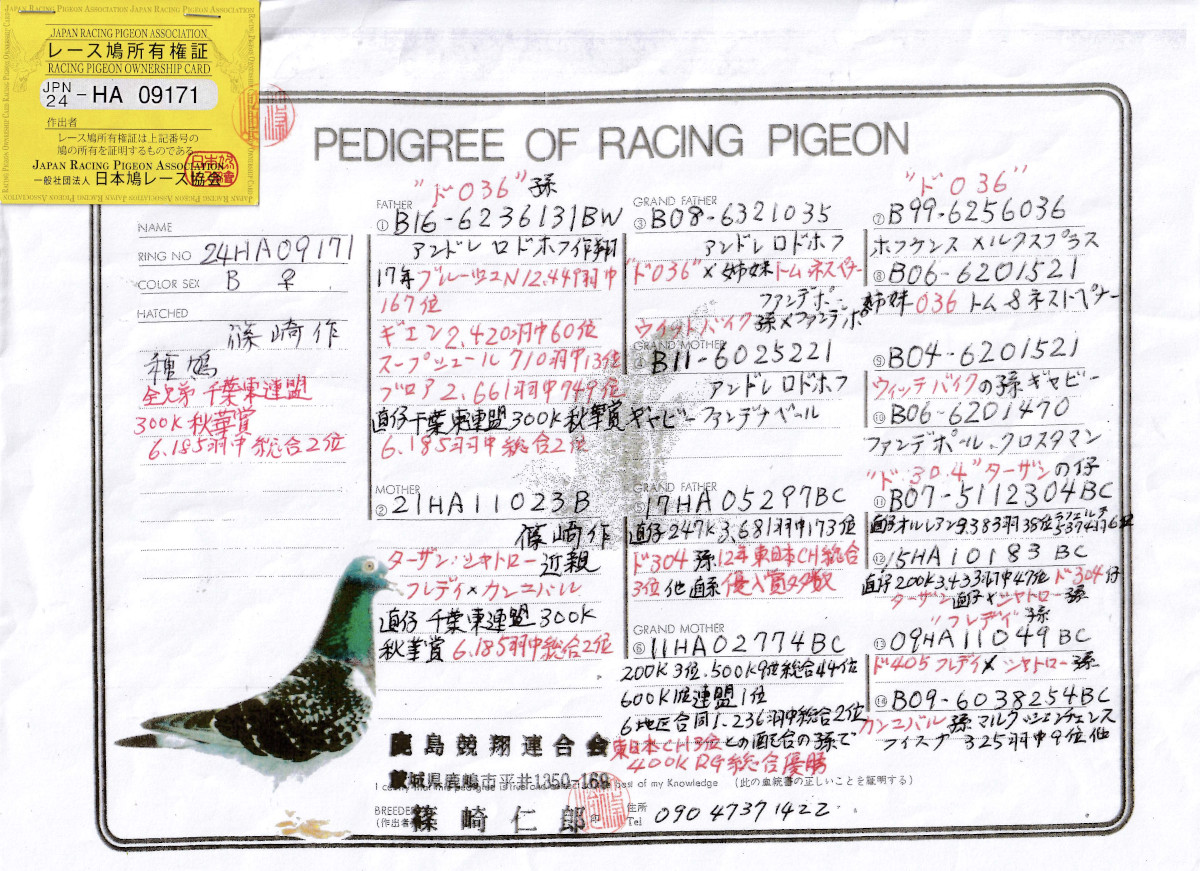 JAPAN RACING PIGEON ASSOCIATION JAPAN RACING PIGEON ASSOCIATION
JAPAN RACING PIGEON ASSOCIATION
レース鳩所有権証
RACING PIGEON OWNERSHIP CARD
JPN 24 - HA 09171
作出者
レース鳩所有権証は上記番号の
鳩の所有を証明するものである。
JAPAN RACING PIGEON ASSOCIATION
一般社団法人 日本鳩レース協会
PEDIGREE OF RACING PIGEON
NAME
RING NO 24HA09171
COLOR SEX B ♀
HATCHED
篠崎作
種鳩
全兄弟 千葉東連盟
300K秋華賞
6.185羽中総合2位
"ド036"孫
FATHER
① B16-6236131BW
アンドレ ロドホフ作翔
17年ブルージュN12.449羽中
167位
ギエン2,420羽中60位
スープシュール710羽中13位
ブロア2,661羽中749位
直仔千葉東連盟300K秋華賞
6.185羽中総合2位
MOTHER
② 21HA11023B
篠崎作
ターザン・シャトロー近親
フレディ×カンニバル
直仔 千葉東連盟 300K
秋華賞 6.185羽中総合2位
GRAND FATHER
③ B08-6321035
アンドレ ロドホフ
"ド036"×姉妹トム ネスペナー
ファンデポ
ウイットバイク孫×ファンデポ
GRAND MOTHER
④ B11-6025221
アンドレ ロドホフ
ギャビーファンデナベール
GRAND FATHER
⑤ 17HA05297BC
直仔247K3,681羽中173位
ド304孫12年東日本CH総合
3位 他直系優入賞多数
GRAND MOTHER
⑥ 11HA02774BC
200K3位.500K9位総合44位
600K1位連盟1位
6地区合同1.236羽中総合2位
東日本CH3位との配合の孫で
400KRg総合優勝
"ド036"
⑦ B99-6256036
ホフケンス メルクスプラス
⑧ B06-6201521
姉妹036 トム&ネストペナー
⑨ B04-6201521
ウィッテバイクの孫ギャビー
⑩ B06-6201470
ファンデポール、クロスタマン
"ド.304"ターザンの仔
⑪ B07-5112304BC
直仔オルレアン9383羽38位
⑫ 15HA10183BC
直仔200K3.433羽中47位 ド304仔
ターザン直仔×シャトロー孫
"フレディ"孫
⑬ 09HA11049BC
ド405フレディ×シャトロー孫
⑭ B09-6038254BC
カンニバル孫マルクツェンデェンス
325羽中9位他
鹿島競翔連合会
茨城県鹿嶋市平井1350-169
I certify that this pedigree is true and best of my Knowledge (此の血統書の正しいことを証明する)
BREEDER
(作出者)
篠崎仁郎 印
住所
Tel 090 4737 1422